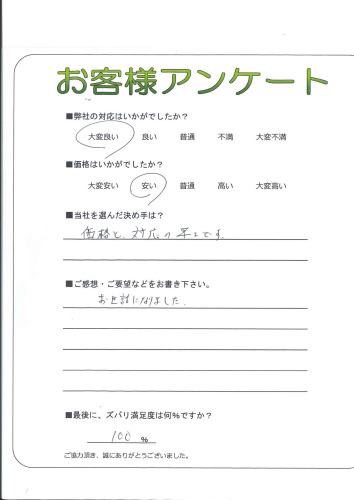 お客様アンケート
■弊社の対応はいかがでしたか？
大変良い 良い 普通 不満 大変不満
■価格はいかがでしたか？
大変安い 安い 普通 高い 大変高い
■当社を選んだ決め手は？
価格と、対応の早さです。
■ご感想・ご要望などをお書き下さい。
お世話になりました。
■最後に、ズバリ満足度は何%ですか？
100 %
ご協力頂き、誠にありがとうございました。